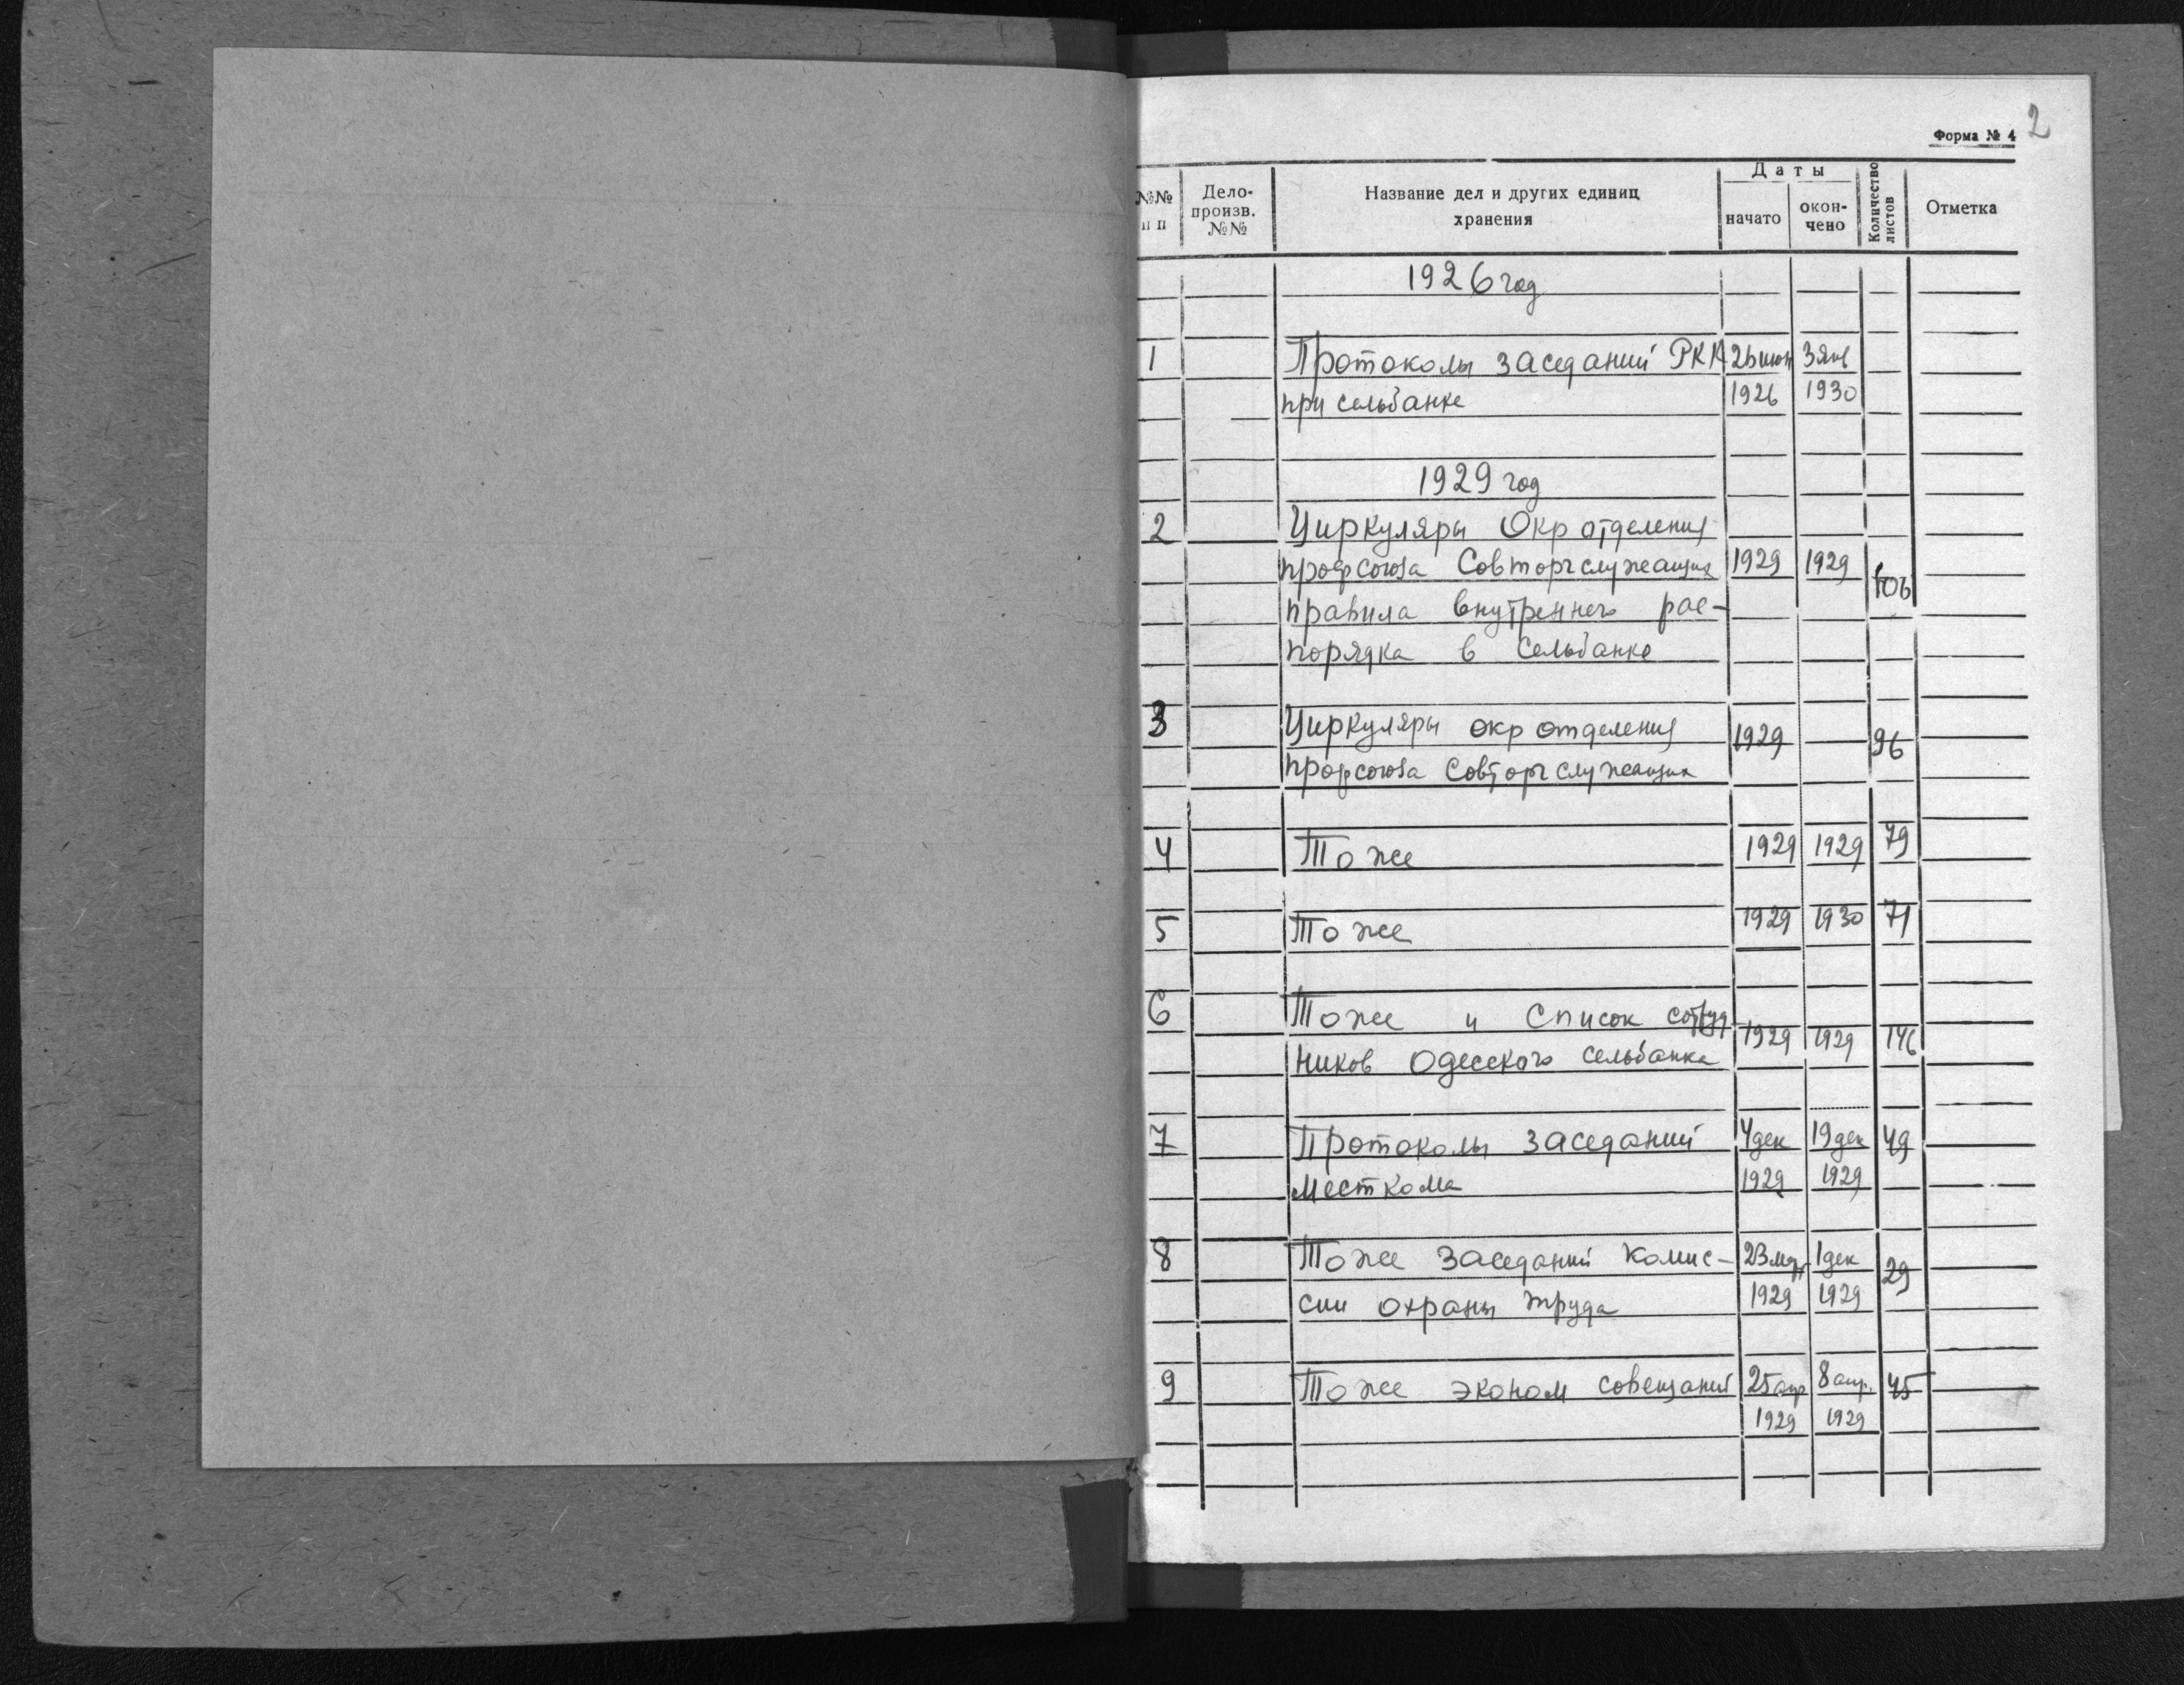 2
Форма № 4
№№ п п | Дело-произв. №№ | Название дел и других единиц хранения | Даты начато | окон-чено | Количество листов | Отметка
1926 год
1 Протоколы заседаний РКК 26 июн 3 янв
при сельбанке 1926 1930
1929 год
2 Циркуляры Окр отделения
профсоюза Совторгслужащих 1929 1929 106
правила внутреннего рас-
порядка в Сельбанке
3 Циркуляры окр отделения 1929 96
профсоюза Совторгслужащих
4 То же 1929 1929 79
5 То же 1929 1930 71
6 То же и Список сотруд-
ников Одесского сельбанка 1929 1929 146
7 Протоколы заседаний 4 дек 19 дек 49
Месткома 1929 1929
8 То же заседаний Комис- 23 1 дек 29
сии охраны труда 1929 1929
9 То же эконом совещаний 25 апр 8 апр. 45
1929 1929